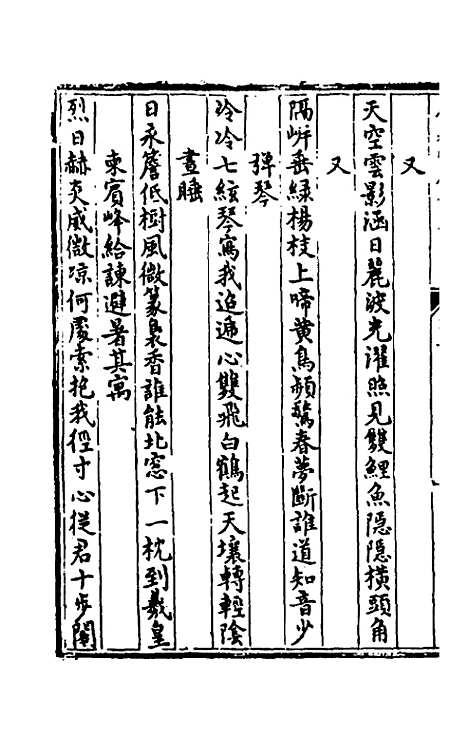 又
天空雲影涵日麗波光濯照見雙鯉魚隱隱橫頭角
又
隔岸垂綠楊枝上啼黃鳥頻驚春夢斷誰道知音少
彈琴
冷冷七絃琴寫我迢遞心雙飛白鶴起天壤轉輕陰
晝睡
日永簷低樹風微篆裊香誰能北窓下一枕到羲皇
柬賓峰給諫避暑其寓
烈日赫炎威微凉何處索抱我徑寸心從君十步閣